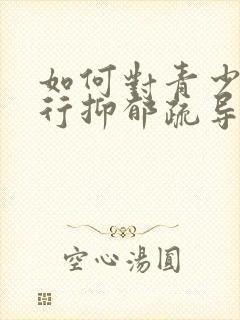 如何對青少
行抑郁疏导
空心湯圓